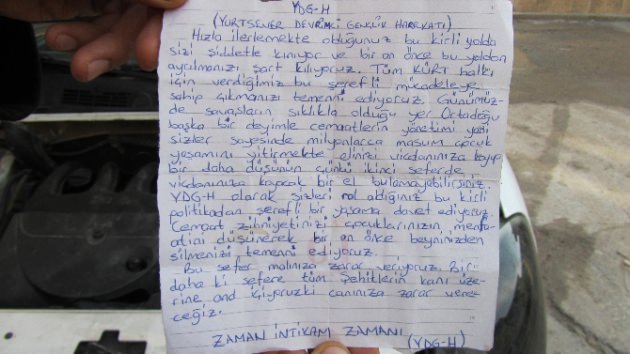 YDG-H
(YURTSEVER DEVRİMCİ GENÇLİK HAREKATI)
Hızla ilerlemekte olduğunuz bu kirli yolda
sizi şiddetle kınıyor ve bir an önce bu yoldan
ayrılmanızı şart kılıyoruz. Tüm KÜRT halkı
için verdiğimiz bu şerefli mücadeleye
sahip çıkmanızı temenni ediyoruz. Günümüz-
de savaşların sıklıkla olduğu yer Ortadoğu
başka bir deyimle cemaatlerin yönetimi yani
sizler sayesinde milyonlarca masum çocuk
yaşamını yitirmekte elinizi vicdanınıza koyup
bir daha düşünün çünkü ikinci seferde
vicdanınıza koyacak bir el bulamayabilirsiniz.
YDG-H olarak sizleri rol aldığınız bu kirli
politikadan şerefli bir yaşama davet ediyoruz.
Cemaat zihniyetinizi çocuklarınızın, menfa-
atini düşünerek bir an önce beyninizden
silmenizi temenni ediyoruz.
Bu sefer malınıza zarar veriyoruz. Bir
daha ki sefere tüm Şehitlerin kanı üze-
rine and içiyoruzki canınıza zarar vere-
ceğiz.
ZAMAN İNTİKAM ZAMANI
(YDG-H)